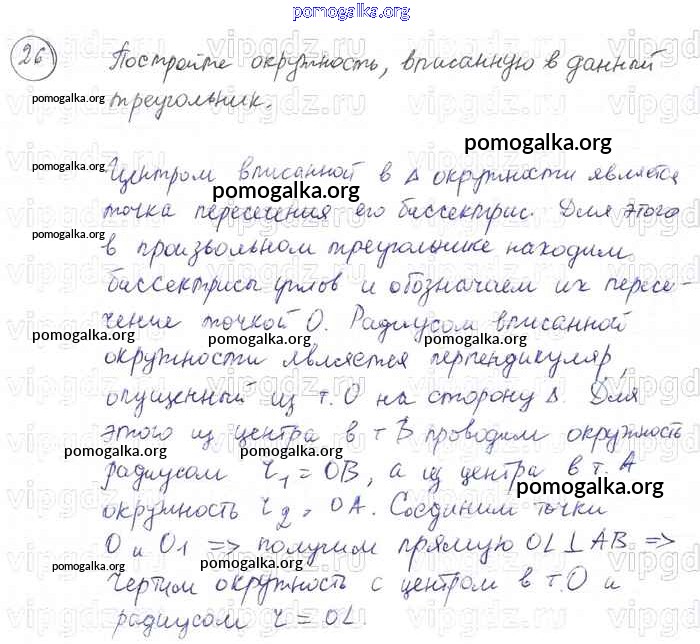 pomogalka.org
26 Постройте окружность, вписанную в данный
pomogalka.org треугольник.
pomogalka.org
pomogalka.org Центром вписанной в Δ окружности является
pomogalka.org
точка пересечения его биссектрис. Для этого
pomogalka.org в произвольном треугольнике находим
биссектрисы углов и обозначаем их пересе-
чение точкой О. Радиусом вписанной
pomogalka.org pomogalka.org
окружности является перпендикуляр,
опущенный из т. О на сторону Δ. Для
этого из центра в т В проводим окружность
pomogalka.org pomogalka.org
радиусом r₁ = OB, а из центра в т. А
pomogalka.org
окружность r₂ = OA. Соединим точки
О и О1 => получим прямую OL ⊥ AB =>
pomogalka.org pomogalka.org
Чертим окружность с центром в т.О и
радиусом r = OL